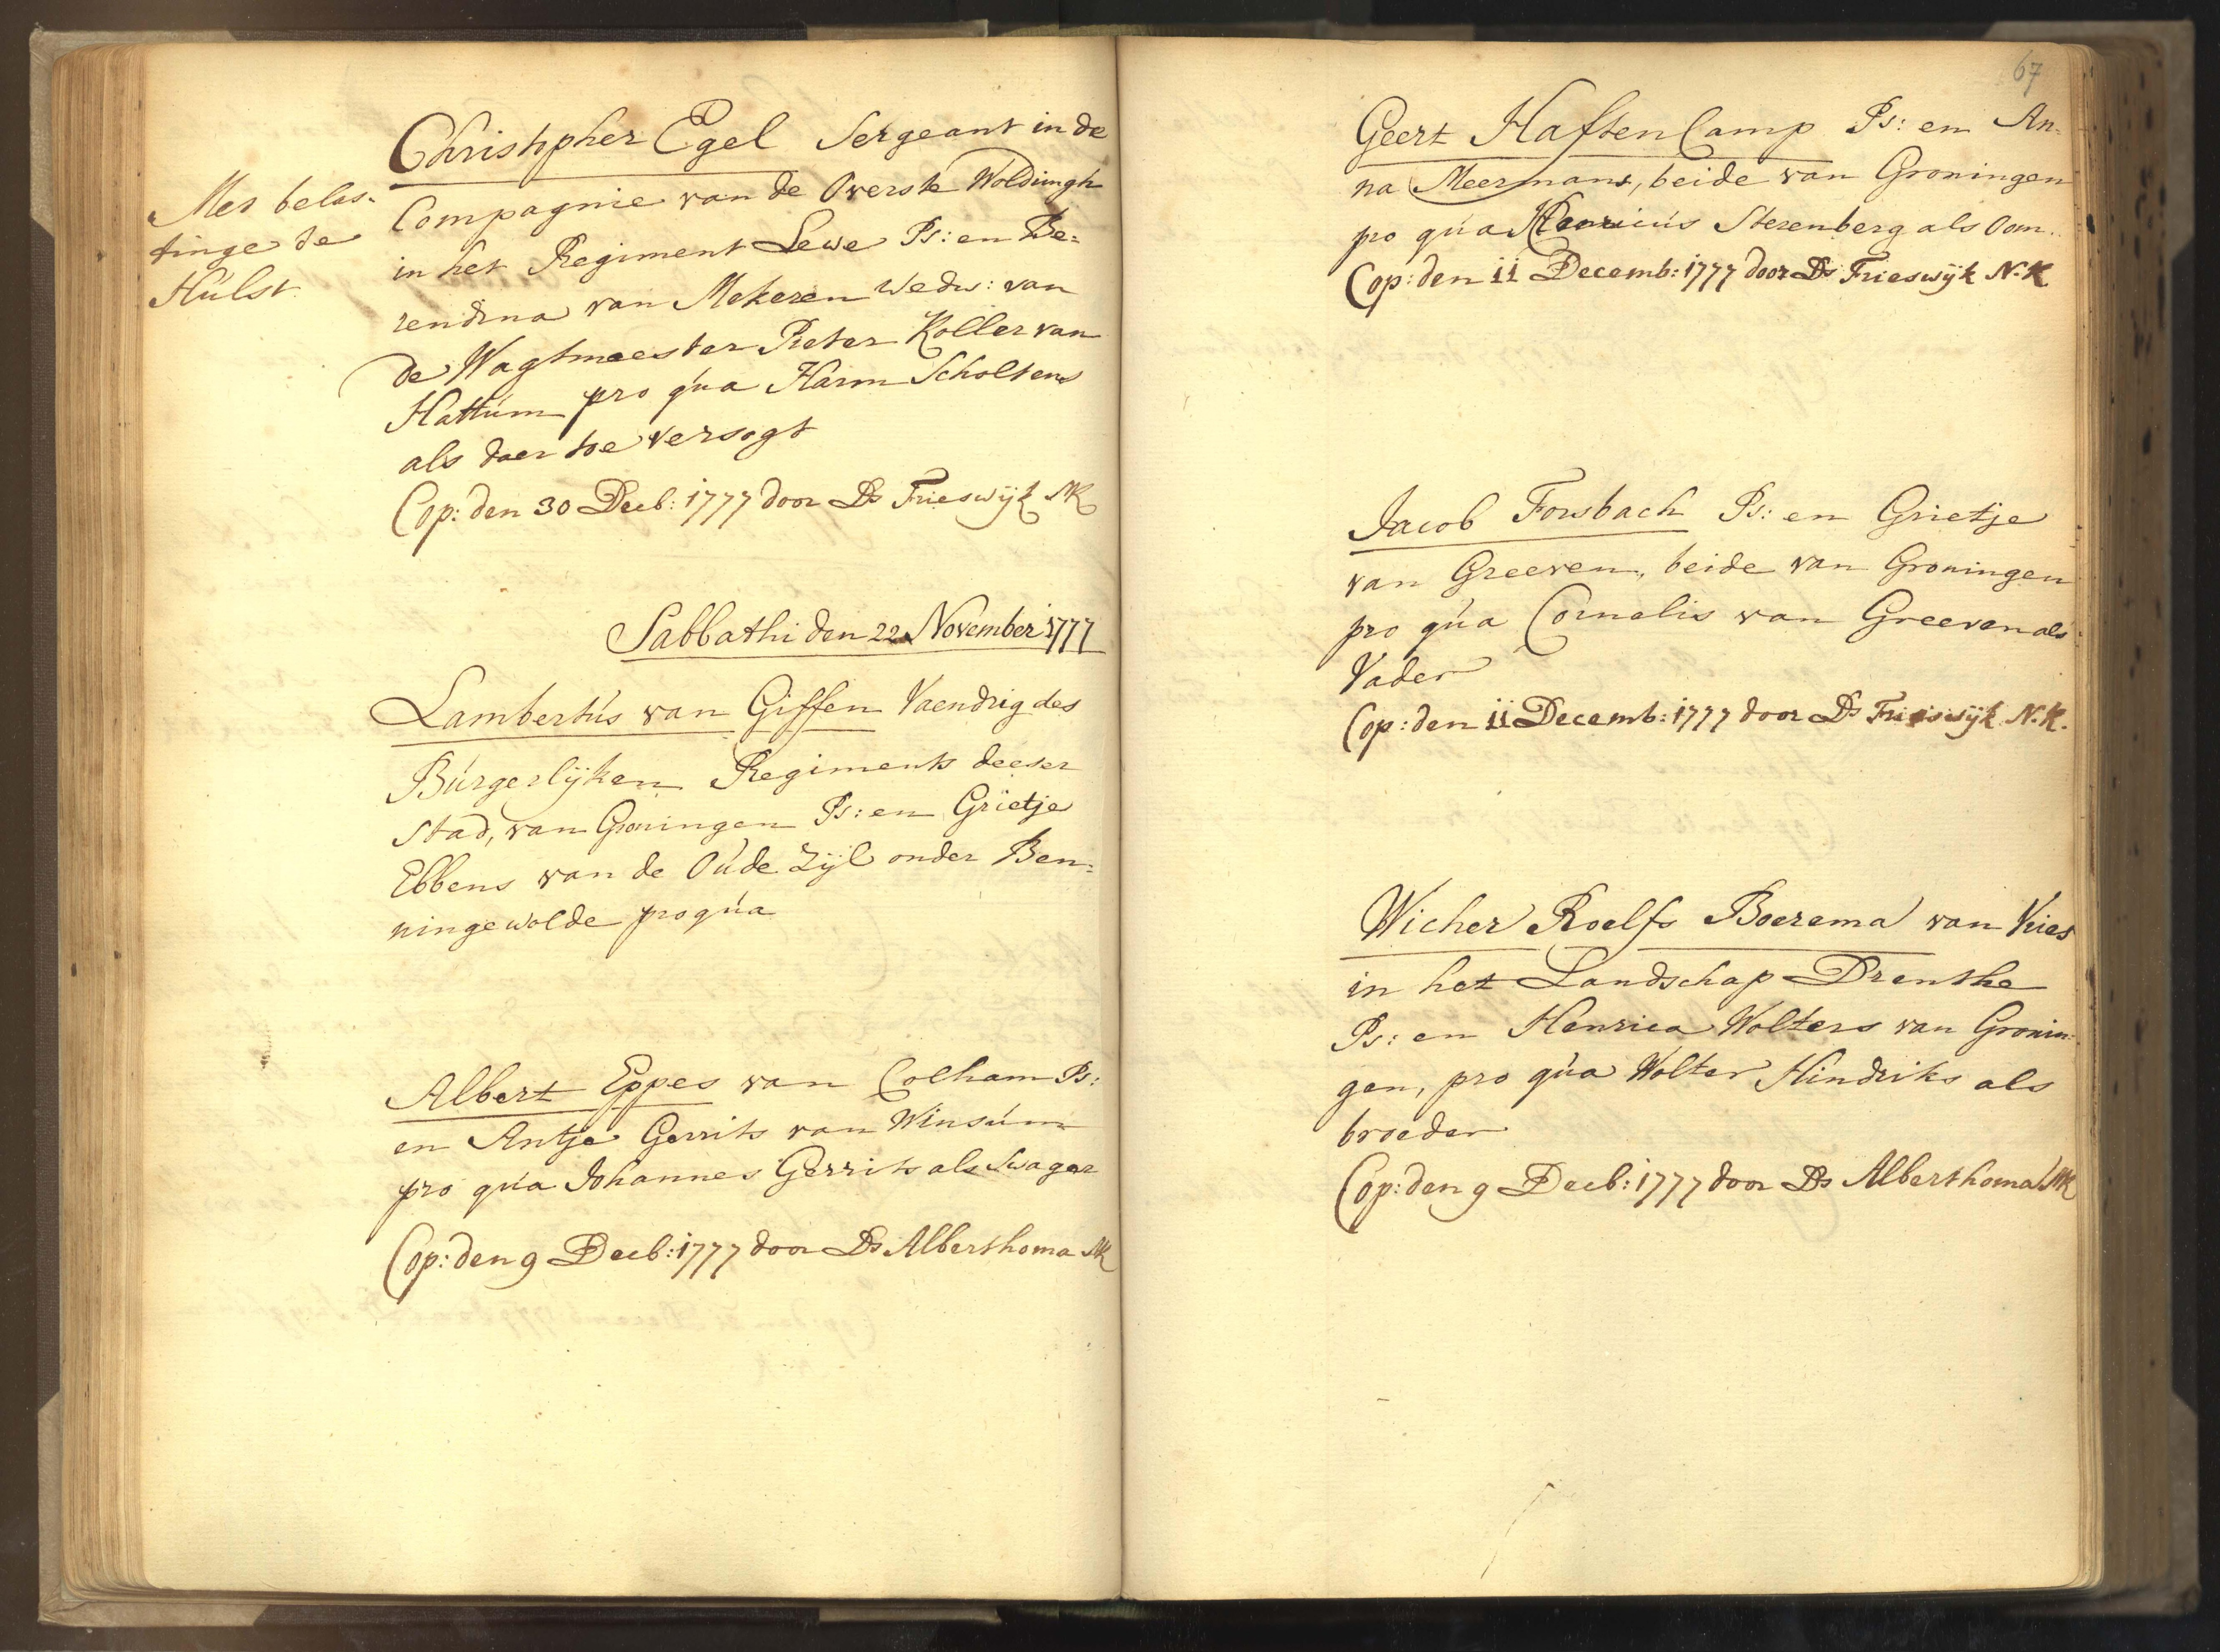 Met belas-
tinge te
Hulst
Christopher Egel Sergeant in de
Compagnie van de Overste Woldringh
in het Regiment Lewe Ps: en Be=
rendina van Mekeren Wedw: van
de Wagtmeester Pieter Koller van
Hattum pro qua Harm Scholtens
als daer toe versogt
Cop: den 30 Decb: 1777 door Ds Frieswijk NK
Sabbathi den 22 November 1777
Lambertus van Giffen Vaendrig des
Burgerlijken Regiments deeser
Stad, van Groningen Ps: en Grietje
Ebbens van de Oude Zijl onder Ben=
ningewolde pro qua
Albert Eppes van Colham Ps:
en Antje Gerrits van Winsum
pro qua Johannes Gerrits als Swager
Cop: den 9 Decb: 1777 door Ds Alberthoma NK
67
Geert HaftenCamp Ps: en An=
na Meermans, beide van Groningen
pro qua Henricus Sterenberg als Oom.
Cop: den 11 Decemb: 1777 door Ds Frieswijk N.K
Jacob Forsbach Ps: en Grietje
van Greeven, beide van Groningen
pro qua Cornelis van Greeven als
Vader
Cop: den 11 Decemb: 1777 door Ds Frieswijk N.K.
Wicher Roelfs Boerema van Vries
in het Landschap Drenthe
Ps: en Henrica Wolters van Gronin=
gen, pro qua Wolter Hindriks als
broeder
Cop: den 9 Decb: 1777 door Ds Alberthoma NK